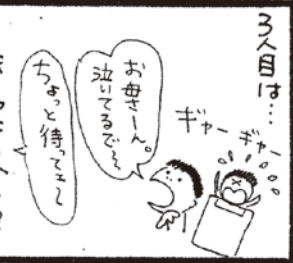 3人目は…
ギャー ギャー
お母さーん。
泣いてるで〜
ちょっと待ってェ〜